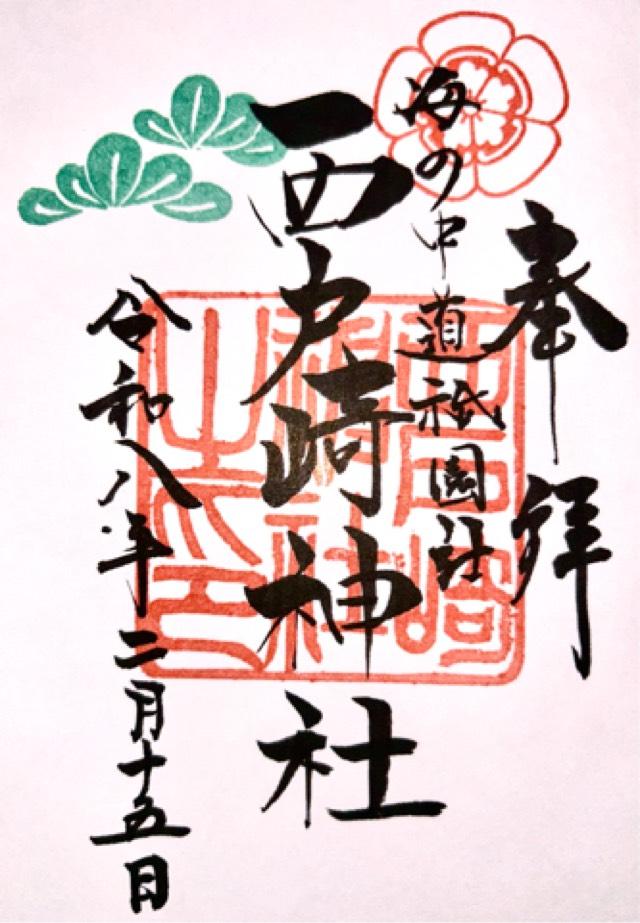 奉拝
海の中道祇園社
西戸崎神社
令和八年二月十五日
西戸崎
神社
之印